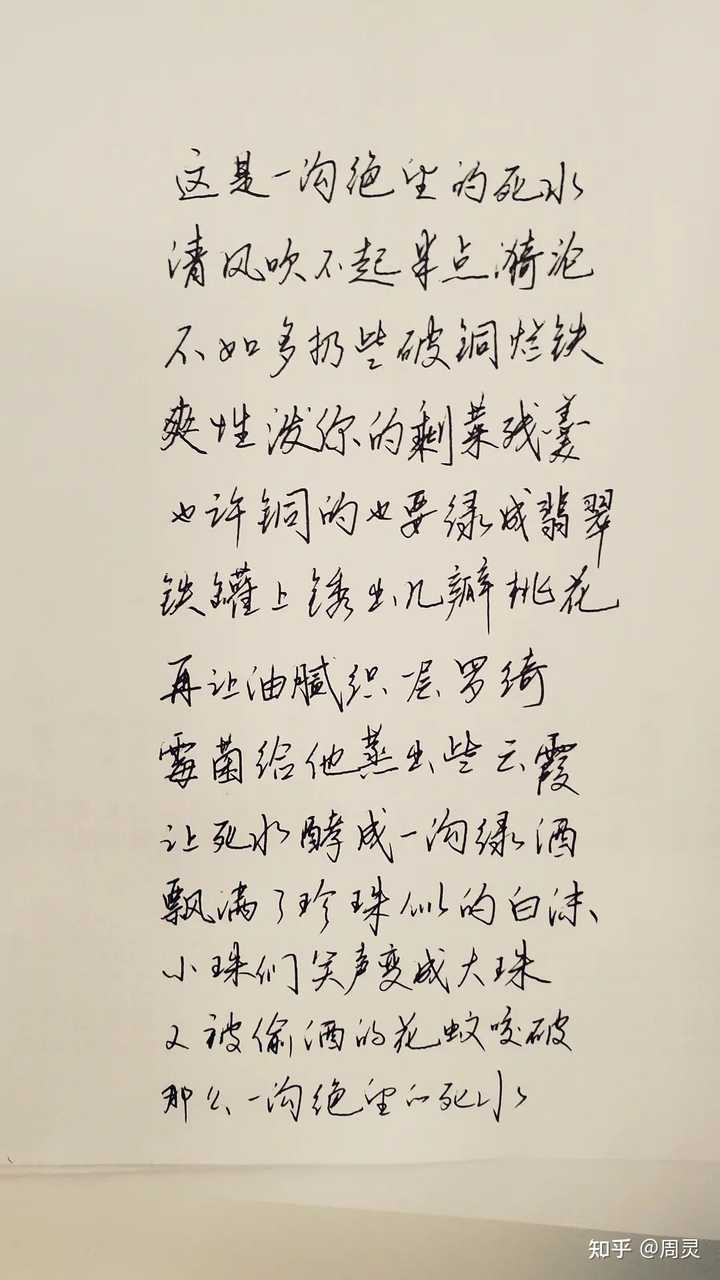 这是一沟绝望的死水
清风吹不起半点漪沦
不如多扔些破铜烂铁
爽性泼你的剩菜残羹
也许铜的也要绿成翡翠
铁罐上锈出几瓣桃花
再让油腻织一层罗绮
霉菌给他蒸出些云霞
让死水酵成一沟绿酒
飘满了珍珠似的白沫
小珠们笑声变成大珠
又被偷酒的花蚊咬破
那么一沟绝望的死水
知乎 @周灵